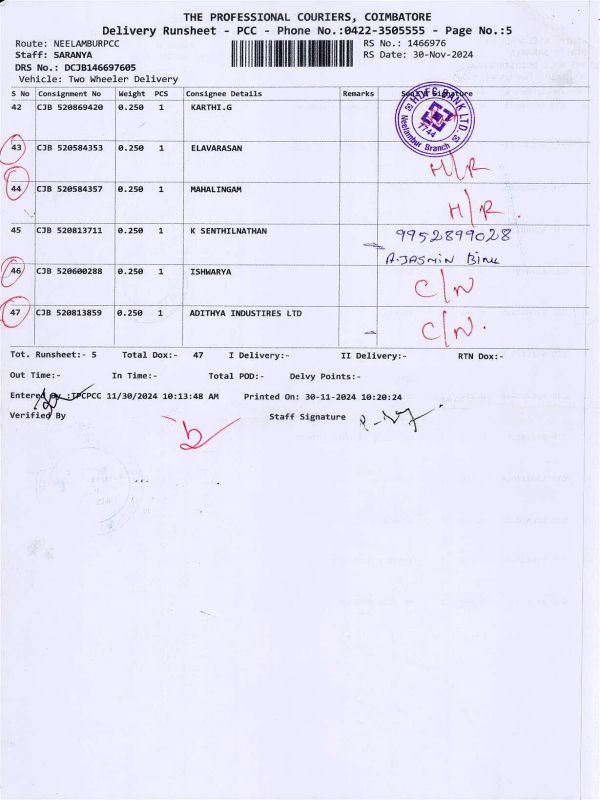 THE PROFESSIONAL COURIERS, COIMBATORE
Delivery Runsheet - PCC - Phone No.:0422-3505555 - Page No.:5
Route: NEELAMBURPCC RS No.: 1466976
Staff: SARANYA RS Date: 30-Nov-2024
DRS No.: DCJB146697605
Vehicle: Two Wheeler Delivery
S No Consignment No Weight PCS Consignee Details Remarks Seal & Signature
42 CJB 520869420 0.250 1 KARTHI.G
HDFC BANK LTD.
1744
Neelambur Branch
43 CJB 520584353 0.250 1 ELAVARASAN H/R
44 CJB 520584357 0.250 1 MAHALINGAM H/R.
45 CJB 520813711 0.250 1 K SENTHILNATHAN 9952899028
A.JASMIN
46 CJB 520600288 0.250 1 ISHWARYA C/N
47 CJB 520813859 0.250 1 ADITHYA INDUSTIRES LTD C/N.
Tot. Runsheet:- 5 Total Dox:- 47 I Delivery:- II Delivery:- RTN Dox:-
Out Time:- In Time:- Total POD:- Delvy Points:-
Entered By :TPCPCC 11/30/2024 10:13:48 AM Printed On: 30-11-2024 10:20:24
Verified By Staff Signature